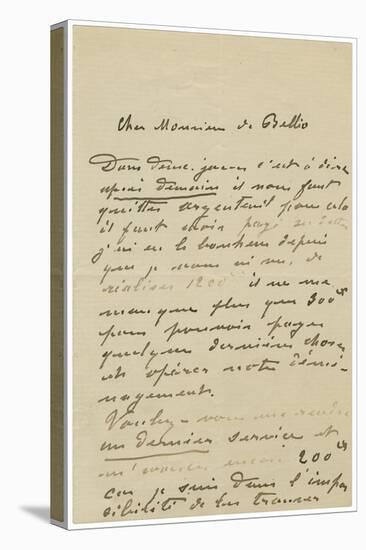 Cher Monsieur de Bellio
Dans deux jours c'est à dire
après demain il nous faut
quitter argenteuil pour cela
il faut avoir payé ses dettes
j'ai eu le bonheur depuis
que je vous ai vu, de
réaliser 1200 il ne me
manque plus que 300
pour pouvoir payer
quelques dernières choses
et opérer notre démé-
nagement.
Voulez-vous me rendre
un dernier service et
m'avancer encore 200
car je suis dans l'impos
sibilité de les trouver